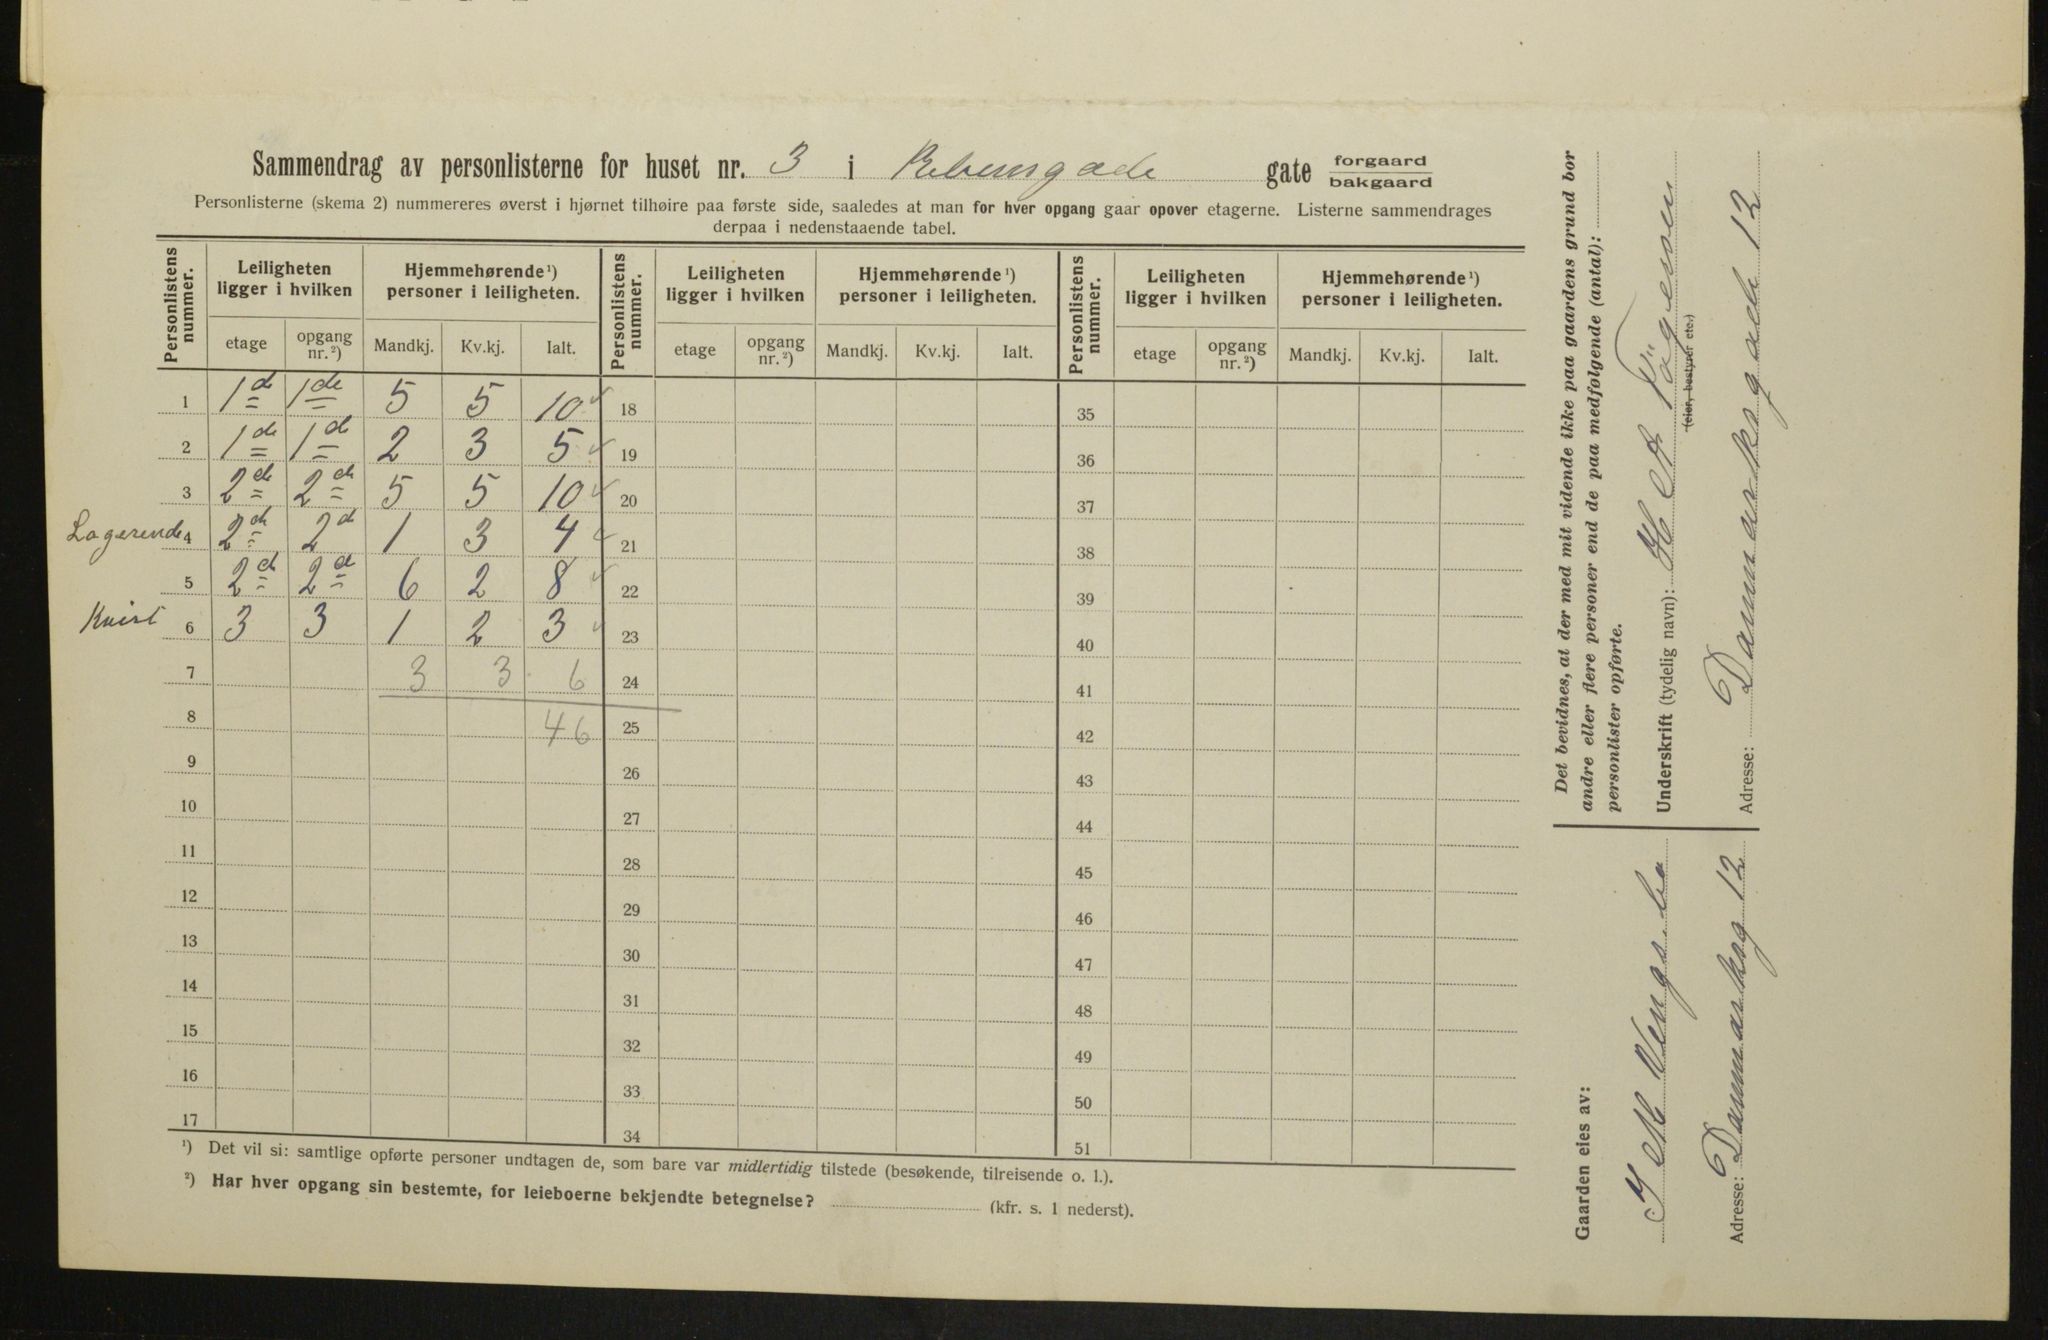 Sammendrag av personlisterne for huset nr. 3 i Rebensgade gate forgaard bakgaard
Personlisterne (skema 2) nummereres øverst i hjørnet tilhøire paa første side, saaledes at man for hver opgang gaar opover etagerne. Listerne sammendrages
derpaa i nedenstaaende tabel.
Personlistens nummer. Leiligheten ligger i hvilken Hjemmehørende¹) personer i leiligheten. Personlistens nummer. Leiligheten ligger i hvilken Hjemmehørende¹) personer i leiligheten. Personlistens nummer. Leiligheten ligger i hvilken Hjemmehørende¹) personer i leiligheten.
etage opgang nr.²) Mandkj. Kv.kj. Ialt. etage opgang nr.²) Mandkj. Kv.kj. Ialt. etage opgang nr.²) Mandkj. Kv.kj. Ialt.
1 1de 1de 5 5 10 ✓ 18 35
2 1de 1de 2 3 5 ✓ 19 36
3 2de 2de 5 5 10 ✓ 20 37
Logerende 4 2d 2d 1 3 4 ✓ 21 38
5 2d 2d 6 2 8 ✓ 22 39
Kvist 6 3 3 1 2 3 ✓ 23 40
7 3 3 6 24 41
8 46 25 42
9 26 43
10 27 44
11 28 45
12 29 46
13 30 47
14 31 48
15 32 49
16 33 50
17 34 51
¹) Det vil si: samtlige opførte personer undtagen de, som bare var midlertidig tilstede (besøkende, tilreisende o. l.).
²) Har hver opgang sin bestemte, for leieboerne bekjendte betegnelse? (kfr. s. 1 nederst).
Det bevidnes, at der med mit vidende ikke paa gaardens grund bor
andre eller flere personer end de paa medfølgende (antal):
personlister opførte.
Underskrift (tydelig navn):
(eier, bestyrer etc.)
Adresse: Danmarksgade 12
Gaarden eies av:
Adresse: Danmarksg 12